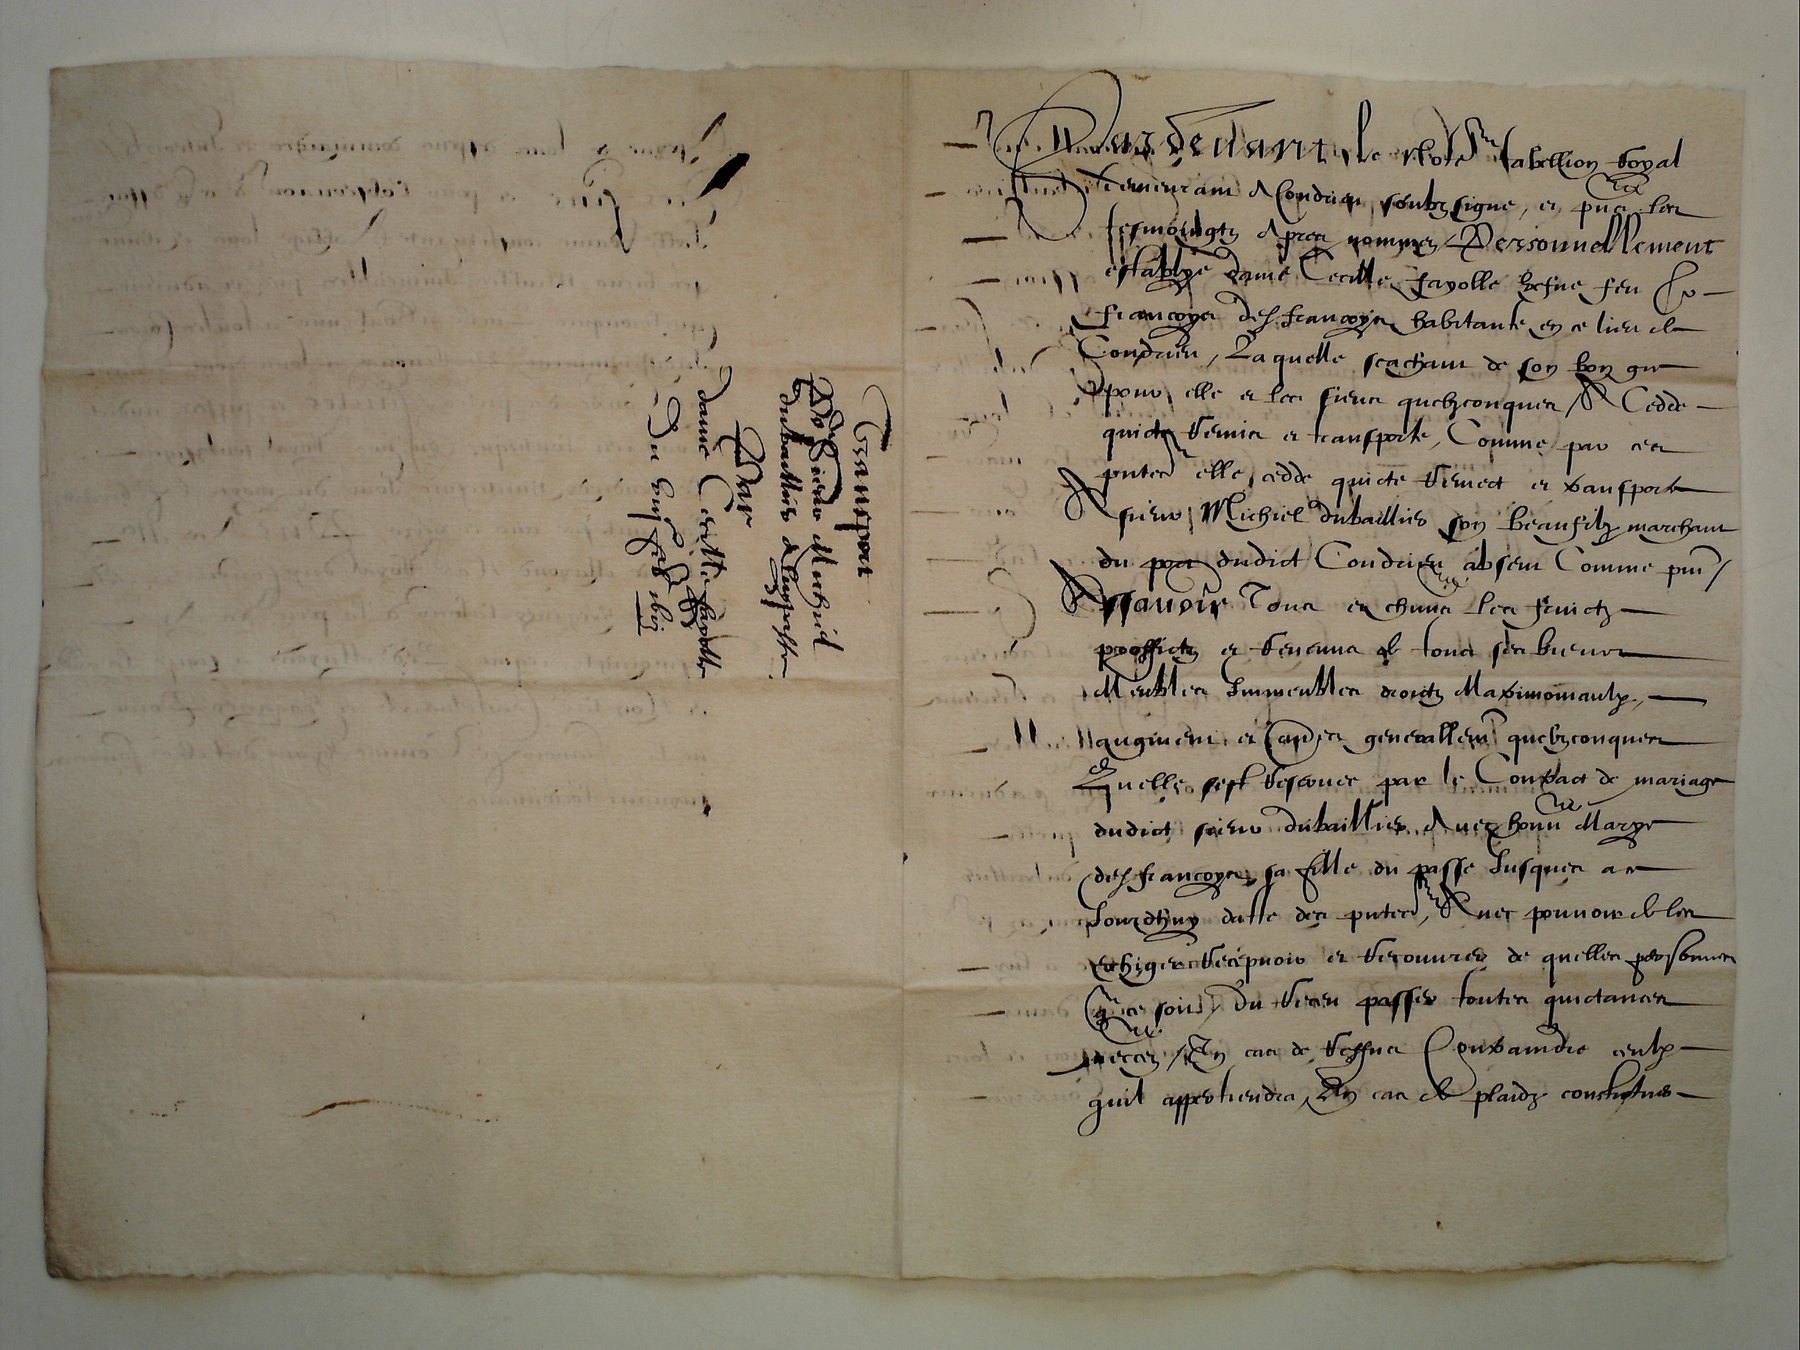 Transport
Au Sieur Michiel
dubaillier
Par
dame Cecille fayolle
Pardevant le notaire tabellion Royal
demeurant a Condrieu soubzsigne, et pnce les
tesmoingtz apres nommez Personnellement
establye dame Cecille fayolle vefve feu Sr
francoys desfrancoys habitante en ce lieu de
Condrieu, Laquelle scachant de son bon gre
pour elle et les siens quelzconques, A Cedde
quicte Remis et transporte, Comme par ces
pntes elle cedde quicte Remect et transporte
A sieur Michiel dubaillier son beaufilz marchant
du port dudict Condrieu absent Comme pnt /
Assavoir Tous et chuns les fruictz
proffictz et Revenuz de tous ses biens
Meubles Immeubles droictz Matrimoniaulx,
augment et generallemt quelzconques
Quelle sest reservee par le Contract de mariage
dudict sieur dubaillier Avec honn Marye
desfrancoys sa fille du passe Jusques a ce
Jourdhuy datte des pntes, Avec pouvoir de les
exhiger Recepvoir et Recouvrer de quelles personnes
que ce soit, Du Receu passer toutes quictances
En cas de Reffus Contraindre ceulx
quil appertiendra, En cas de plaidz constituer